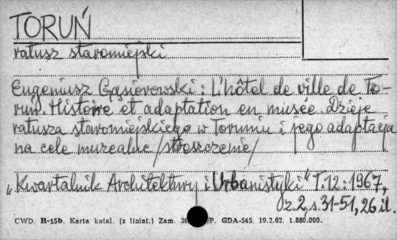 TORUŃ
ratusz staromiejski
Eugeniusz Gąsiorowski : L'hôtel de ville de To-
run. Histoire et adaptation en musée. Dzieje
ratusza staromiejskiego w Toruniu i jego adaptacja
na cele muzealne /streszczenie/
„Kwartalnik Architektury i Urbanistyki" T.12: 1967,
z. 2, s. 31-51, 26 il.
CWD. B-15b. Karta katal. (z liniat.) Zam. P. GDA-545. 19.2.62. 1.880.000.